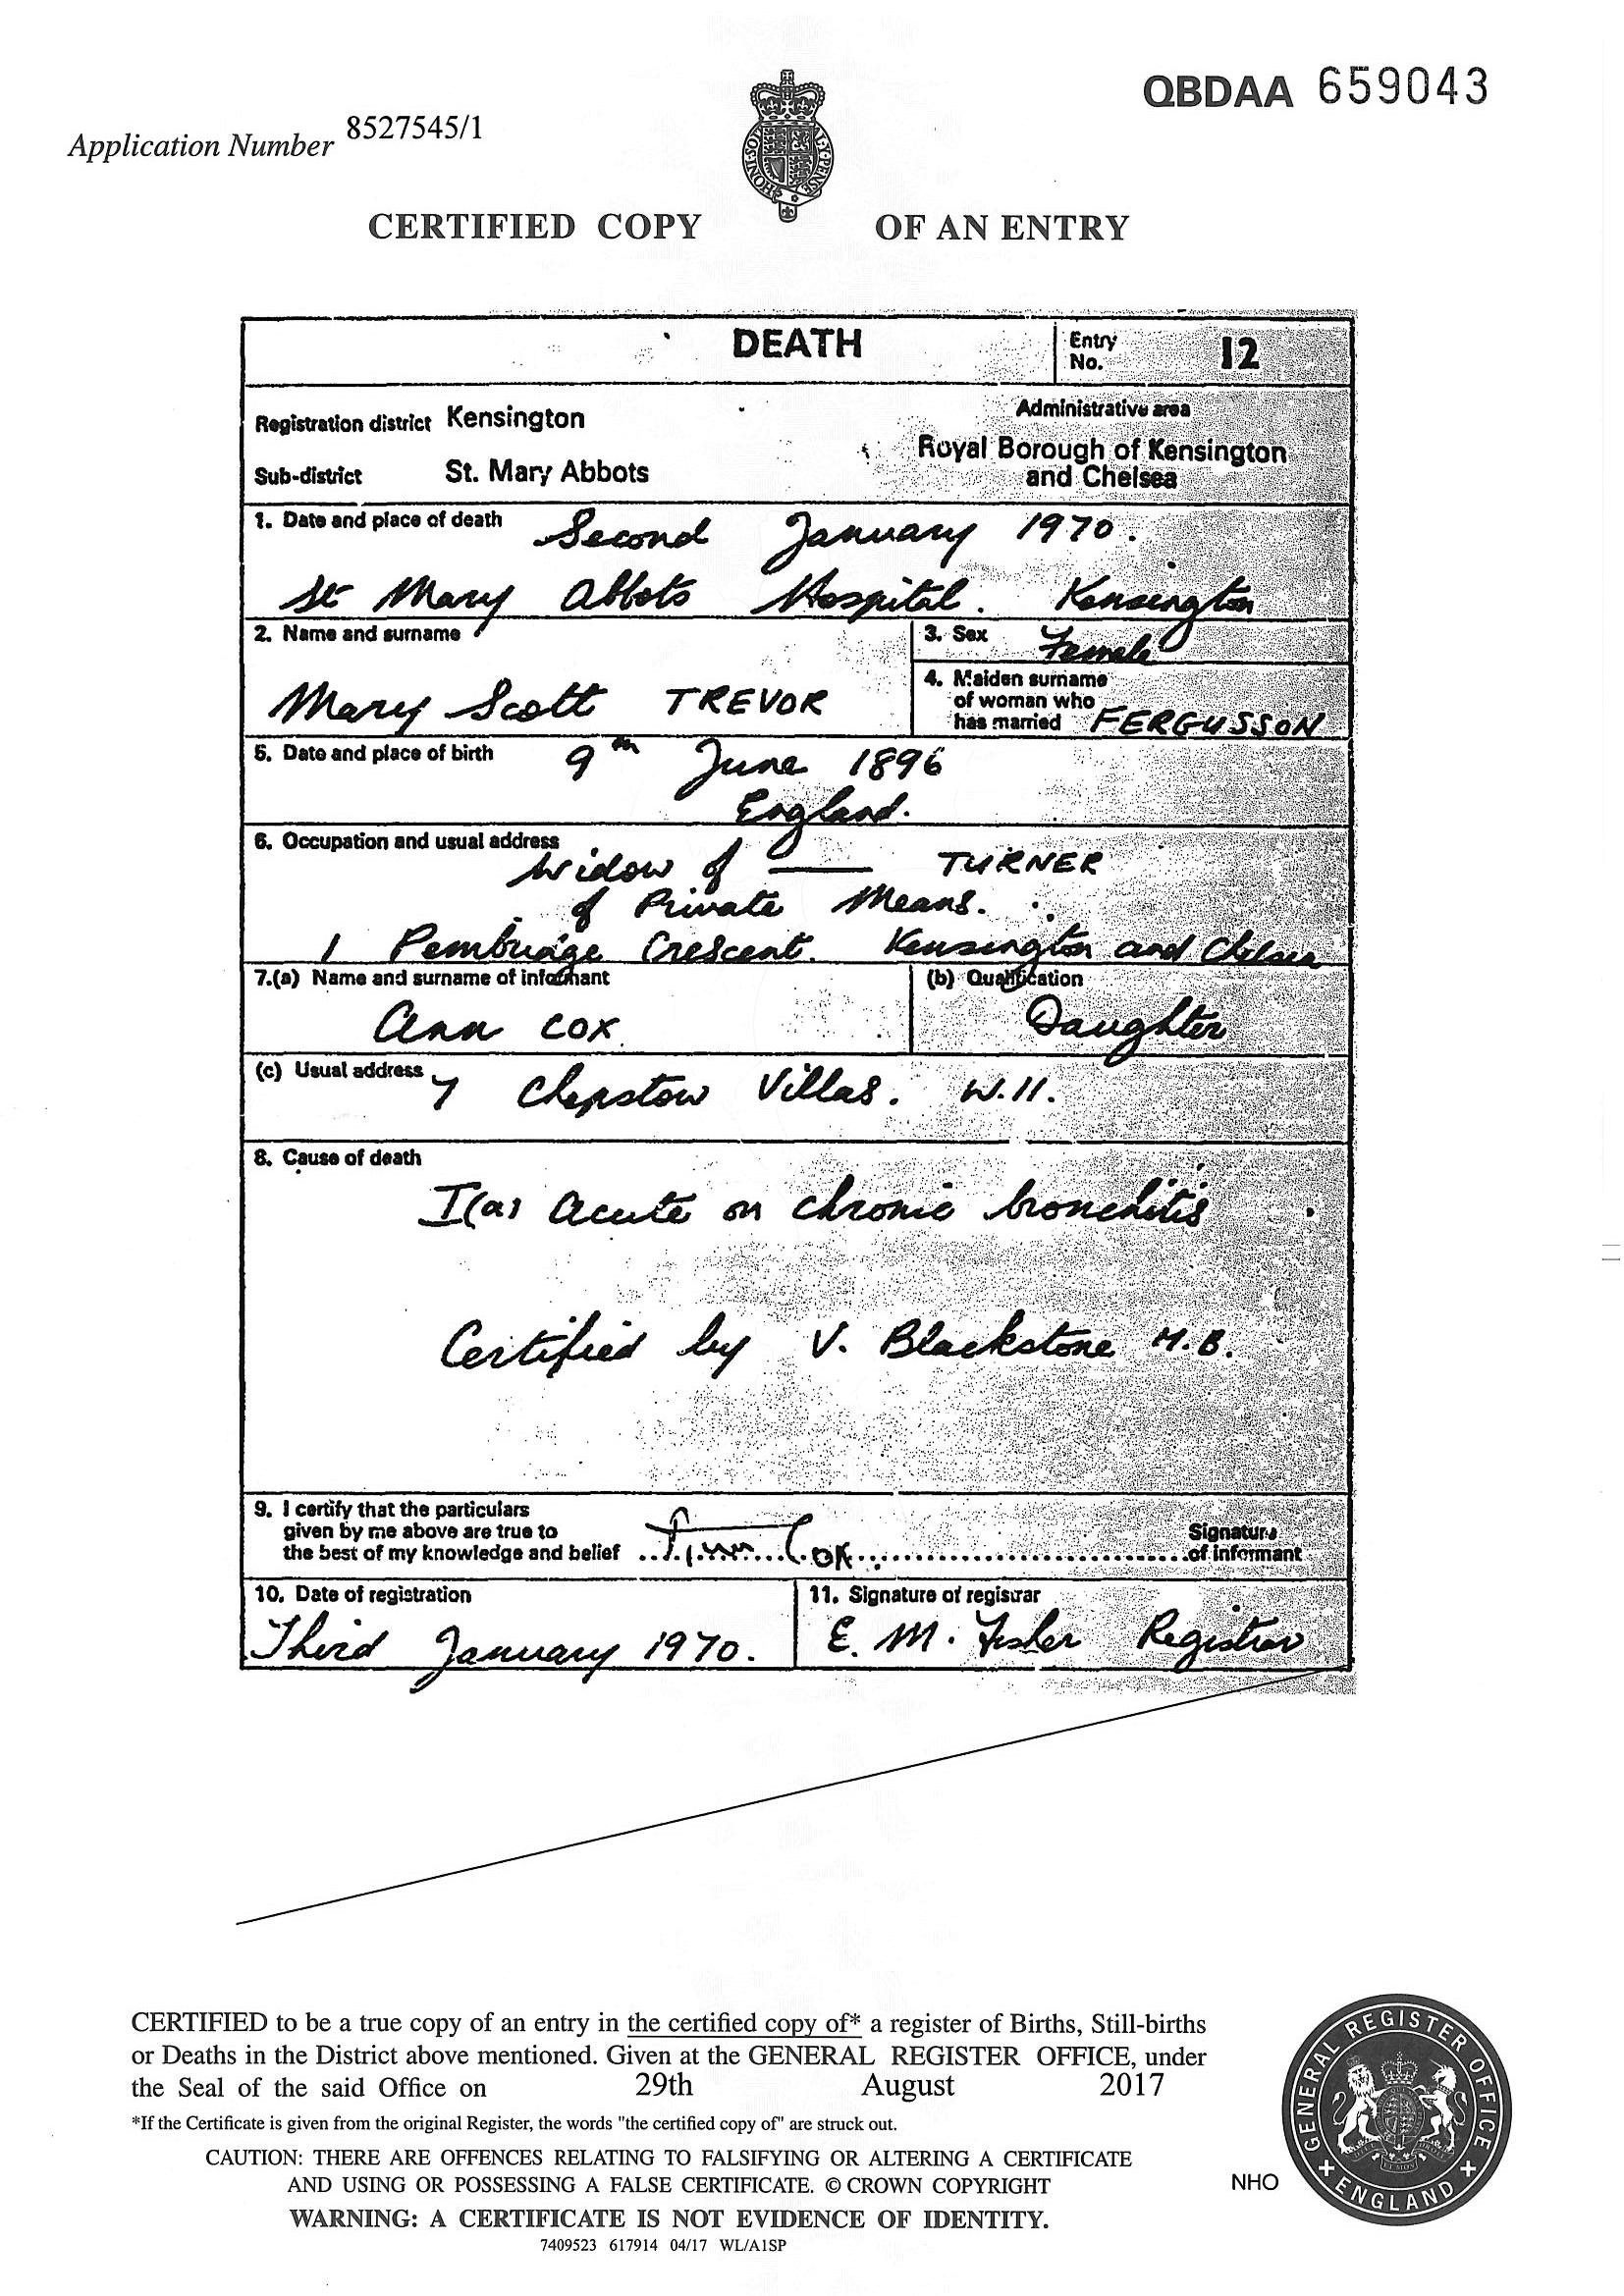 QBDAA 659043
Application Number 8527545/1
HONI·SOI ALY·PENSE
CERTIFIED COPY OF AN ENTRY
DEATH
Entry No. 12
Registration district Kensington
Administrative area
Royal Borough of Kensington
and Chelsea
Sub-district St. Mary Abbots
1. Date and place of death Second January 1970.
St Mary Abbots Hospital. Kensington
2. Name and surname
Mary Scott TREVOR
3. Sex Female
4. Maiden surname
of woman who
has married FERGUSSON
5. Date and place of birth 9th June 1896
England.
6. Occupation and usual address
Widow of —— TURNER
of Private Means.
1 Pembridge Crescent. Kensington and Chelsea
7.(a) Name and surname of informant
Ann COX
(b) Qualification
Daughter
(c) Usual address 7 Chepstow Villas. W.11.
8. Cause of death
I(a) Acute on chronic bronchitis
Certified by V. Blackstone M.B.
9. I certify that the particulars
given by me above are true to
the best of my knowledge and belief Ann Cox Signature
of informant
10. Date of registration
Third January 1970.
11. Signature of registrar
E. M. Fisher Registrar
CERTIFIED to be a true copy of an entry in the certified copy of* a register of Births, Still-births
or Deaths in the District above mentioned. Given at the GENERAL REGISTER OFFICE, under
the Seal of the said Office on 29th August 2017
*If the Certificate is given from the original Register, the words "the certified copy of" are struck out.
CAUTION: THERE ARE OFFENCES RELATING TO FALSIFYING OR ALTERING A CERTIFICATE
AND USING OR POSSESSING A FALSE CERTIFICATE. © CROWN COPYRIGHT
WARNING: A CERTIFICATE IS NOT EVIDENCE OF IDENTITY.
7409523 617914 04/17 WL/A1SP
NHO
GENERAL REGISTER OFFICE
ENGLAND